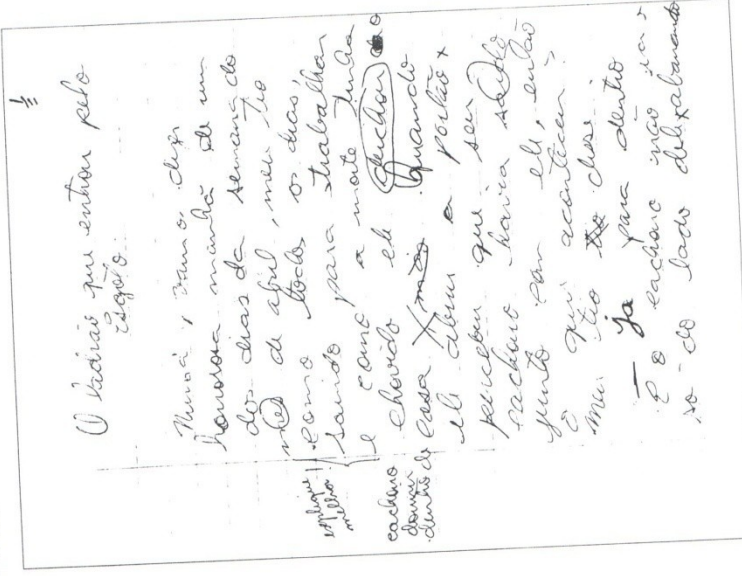 1
O ladrão que entrou pelo
esgoto
Numa, vamos dizer
honrosa manhã de um
dos dias da semana do
mês de abril, meu tio
como todos os dias,
saindo para trabalhar
e como a noite tinha
chovido ele deichou o
cachorro dormir dentro de casa quando
ele abriu o portão
percebeu que seu
cachorro havia saido
junto com ele, então
o que aconteceu?
meu tio disse
— Ja para dentro
e o cachorro não ia
so do lado dele abanando
explique melhor!